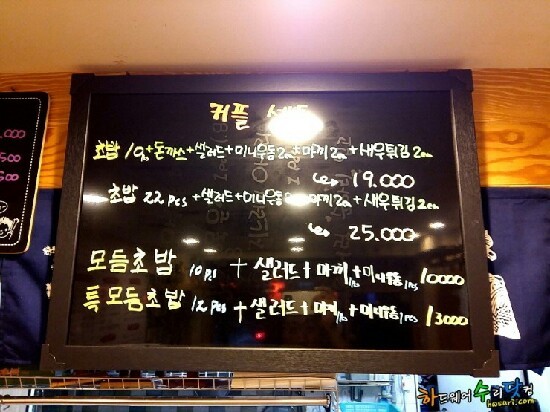 커플 세트
초밥 10p+돈까스+샐러드+미니우동2ea+마끼2ea+새우튀김2ea
19.000
초밥 22pcs+샐러드+미니우동+마끼2ea+새우튀김2ea
25.000
모듬초밥 10ps+샐러드+마끼1ps+미니우동1pcs 10000
특모듬초밥 12pcs+샐러드+마끼1ps+미니우동1pcs 13000
.000
500
500
하드웨어수리닷컴
hwsuri.com